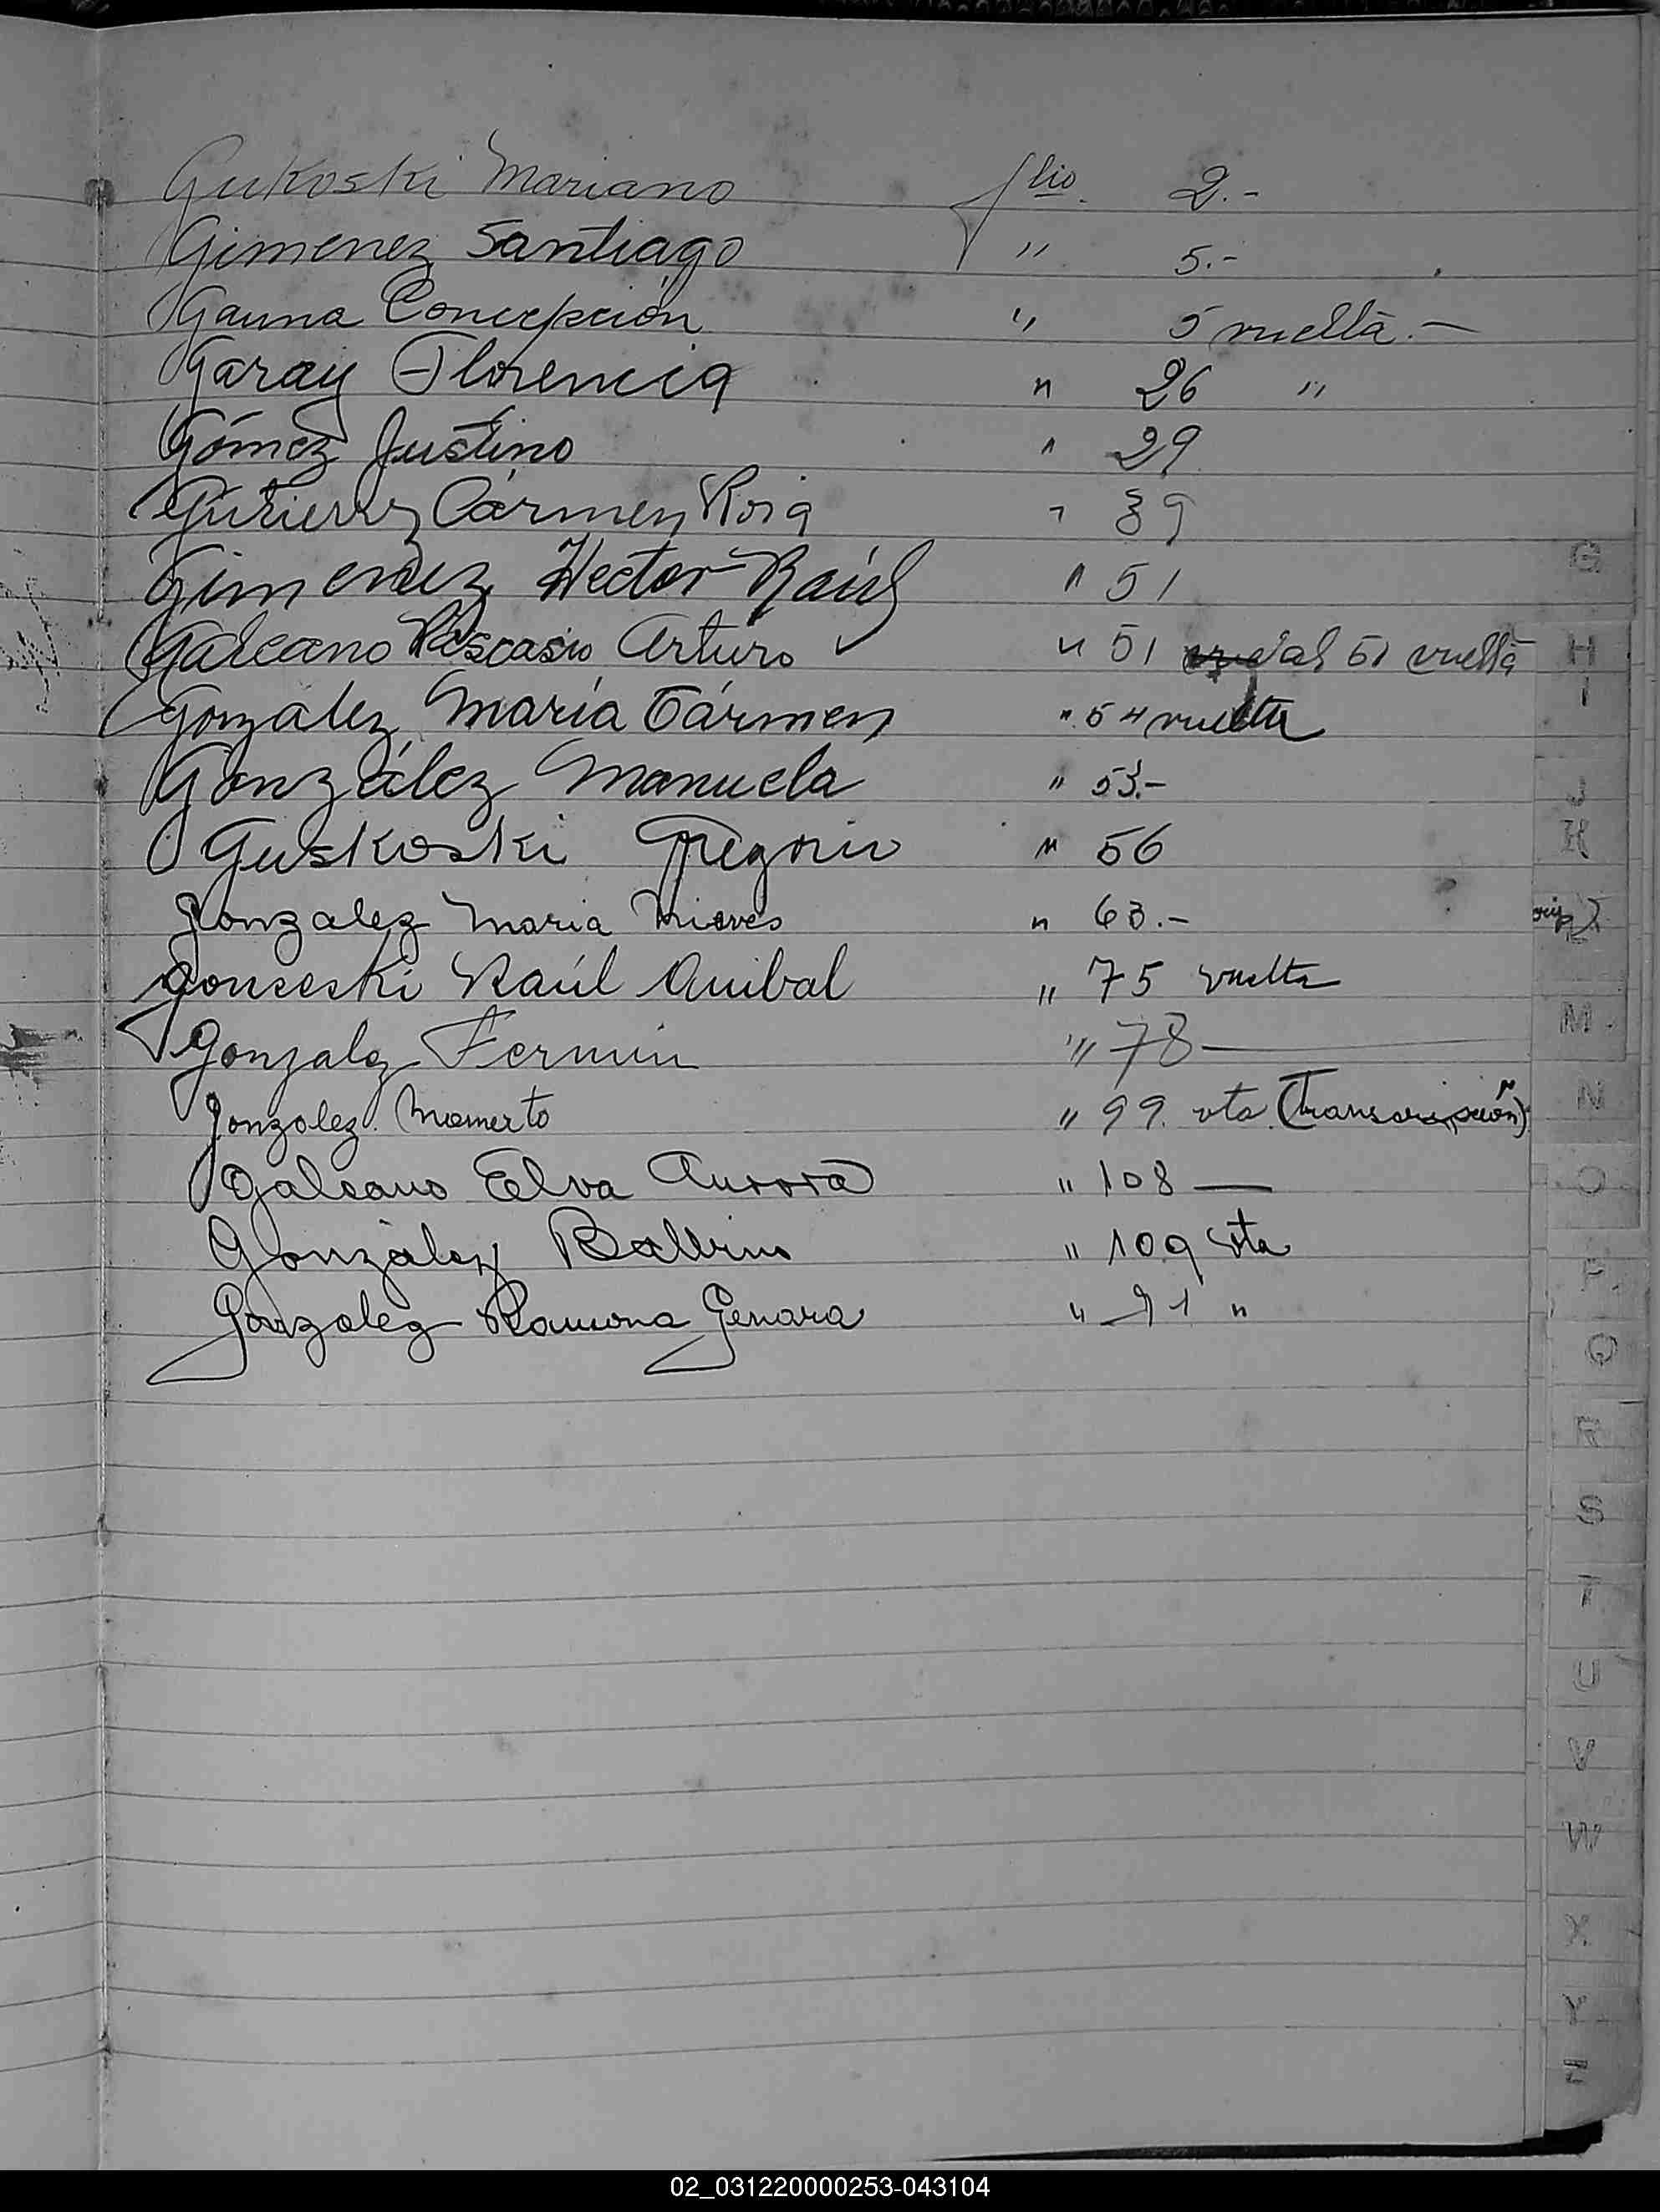 Gukoski Mariano flio. 2.-
Gimenez Santiago " 5.-
Gauna Concepción " 5 vuelta.-
Garay Florencia " 26 "
Gómez Justino " 29
Gutierrez Cármen Rosa " 39
Gimenez Hector Raúl " 51
Galeano Pascasio Arturo " 51 al 51 vuelta
González María Cármen " 54 vuelta
González Manuela " 53.-
Guskoski Gregorio " 56
Gonzalez Maria Nieves " 63.-
Gonseski Raúl Anibal " 75 vuelta
Gonzalez Fermin " 78
Gonzalez Mamerto " 99 vta (Transcripción)
Galeano Elva Aurora " 108
González Balbino " 109 vta
Gonzalez Ramona Genara " 91 "
G
H
I
J
K
M
N
O
P
Q
R
S
T
U
V
W
X
Y
Z
02_031220000253-043104